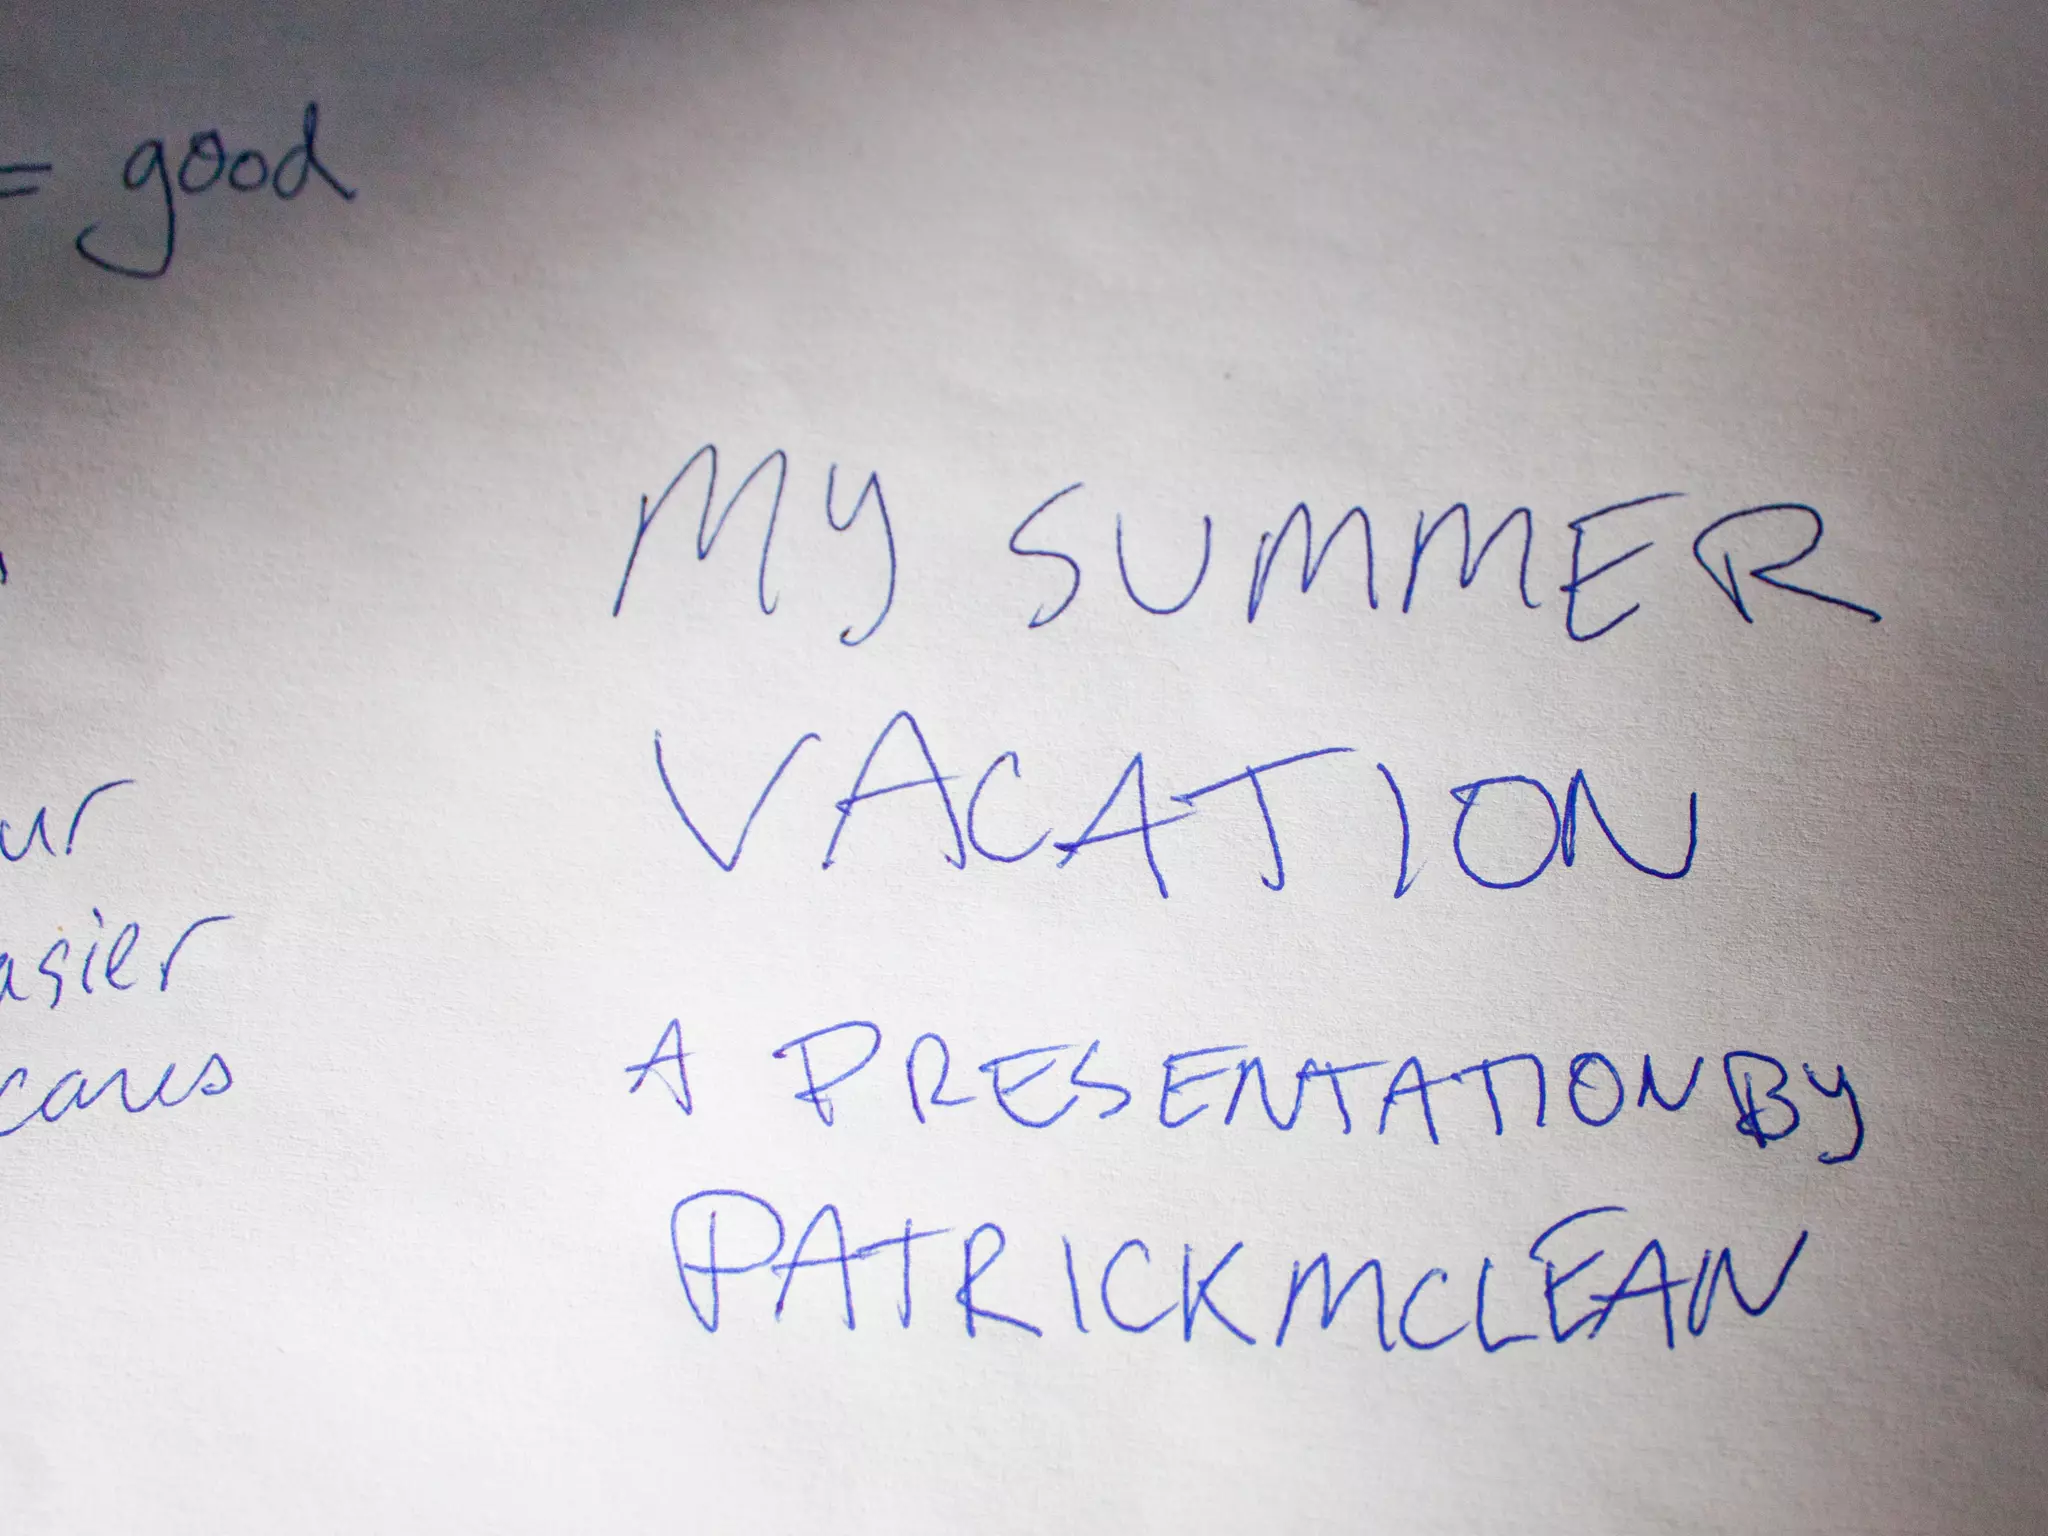 = good
MY SUMMER
VACATION
A PRESENTATION BY
PATRICK MCLEAN
ur
asier
cares